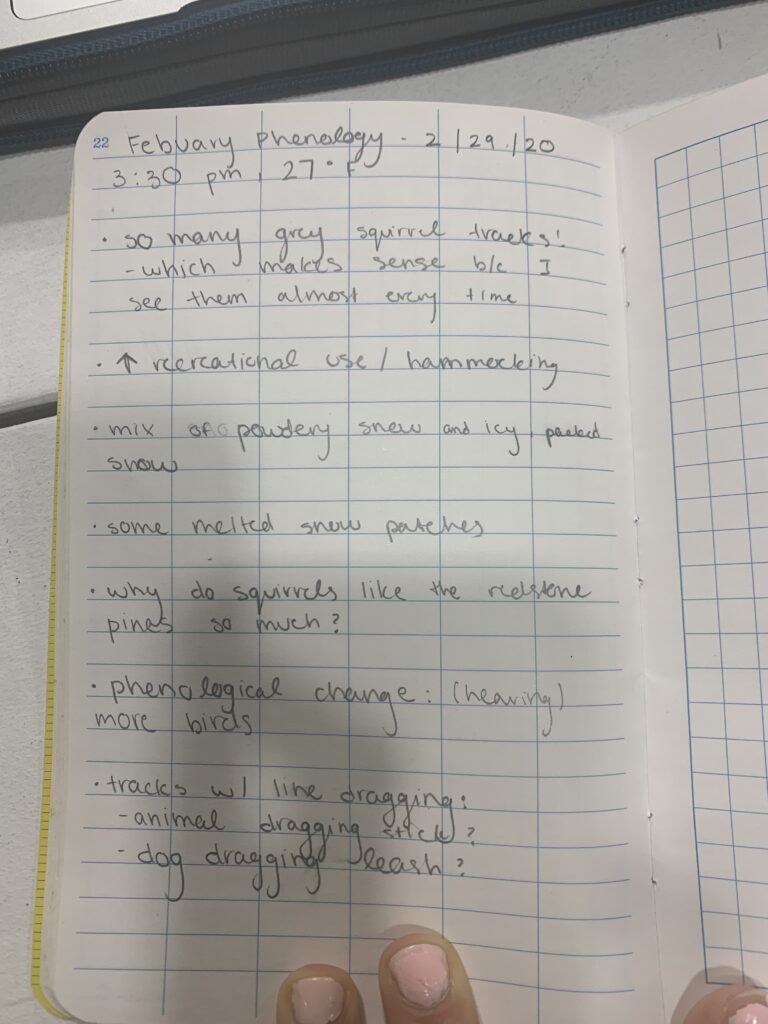 22 Febuary Phenology - 2/29/20
3:30 pm, 27°F
· so many grey squirrel tracks!
- which makes sense b/c I
see them almost every time
· ↑ recreational use / hammocking
· mix of powdery snow and icy, packed
snow
· some melted snow patches
· why do squirrels like the redstone
pines so much?
· phenological change: (hearing)
more birds
· tracks w/ line dragging:
- animal dragging stick?
- dog dragging leash?